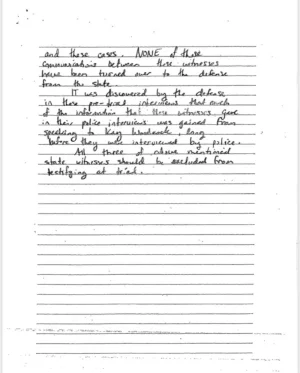 and these cases. NONE of those
communications between these witnesses
have been turned over to the defense
from the state.
IT was discovered by the defense
in these pre-trial interviews that much
of the information that these witnesses gave
in their police interviews was gained from
speaking to Kay long
before they were interviewed by police.
All three of above mentioned
state witnesses should be excluded from
testifying at trial.